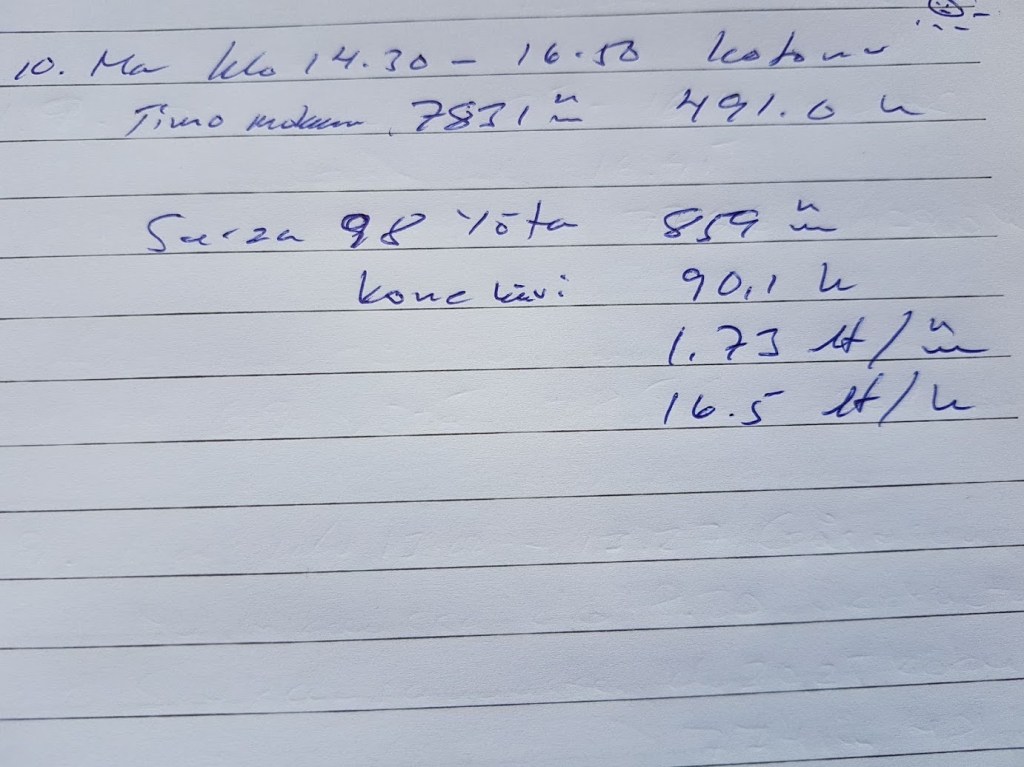 10. Ma klo 14.30 – 16.50 kotona
Timo mukana 7831 m̈ 491.0 h
98 yötä 859 m̈
kone kävi 90,1 h
1.73 lt/m̈
16.5 lt/h